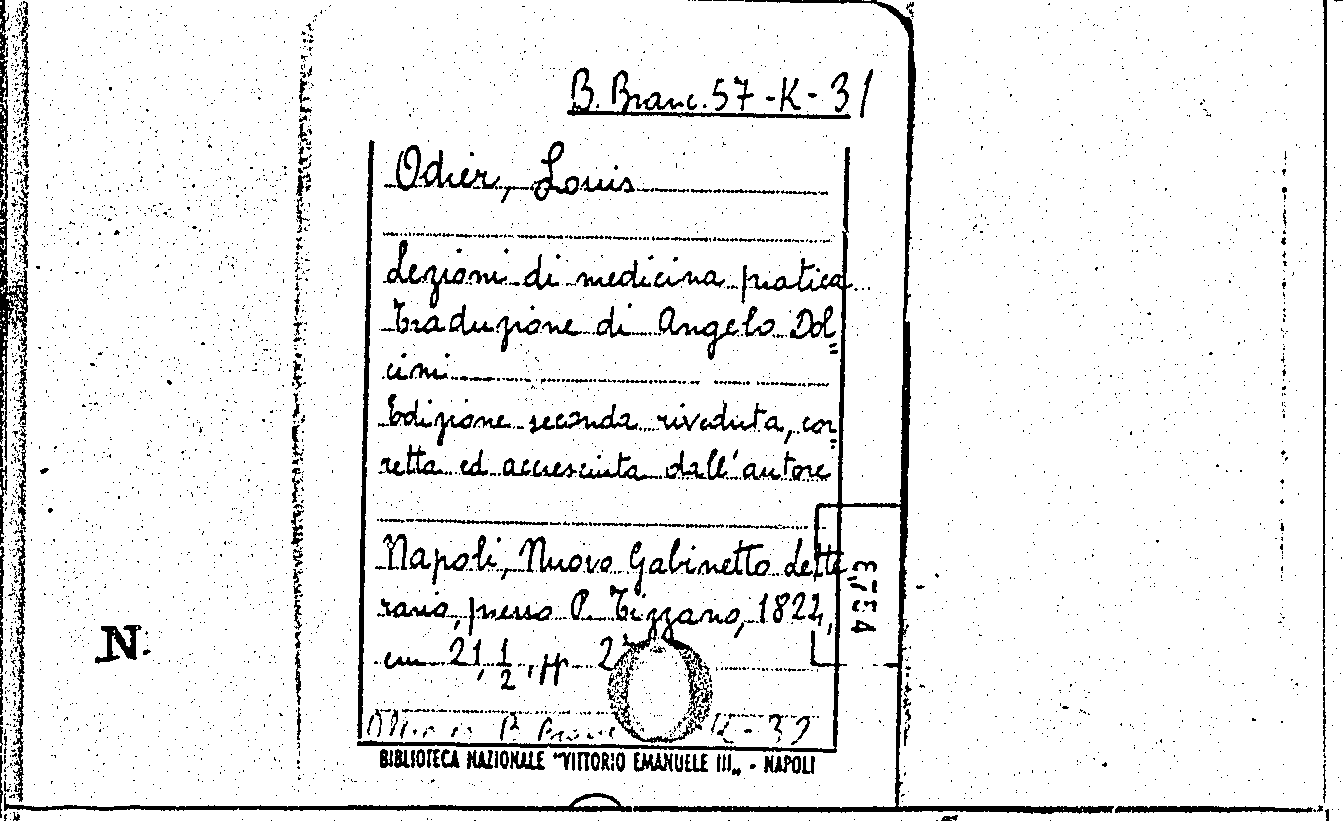 B. Branc. 57-K-31
Odier, Louis
Lezioni di medicina pratica
Traduzione di Angelo Dol=
cini
Edizione seconda riveduta, cor=
retta ed accresciuta dall'autore
Napoli, Nuovo Gabinetto Lette
rario, presso P. Tizzano, 1822,
cm 21, 1/2, pp 2
N.
B. Branc K-32
BIBLIOTECA NAZIONALE "VITTORIO EMANUELE III„ - NAPOLI